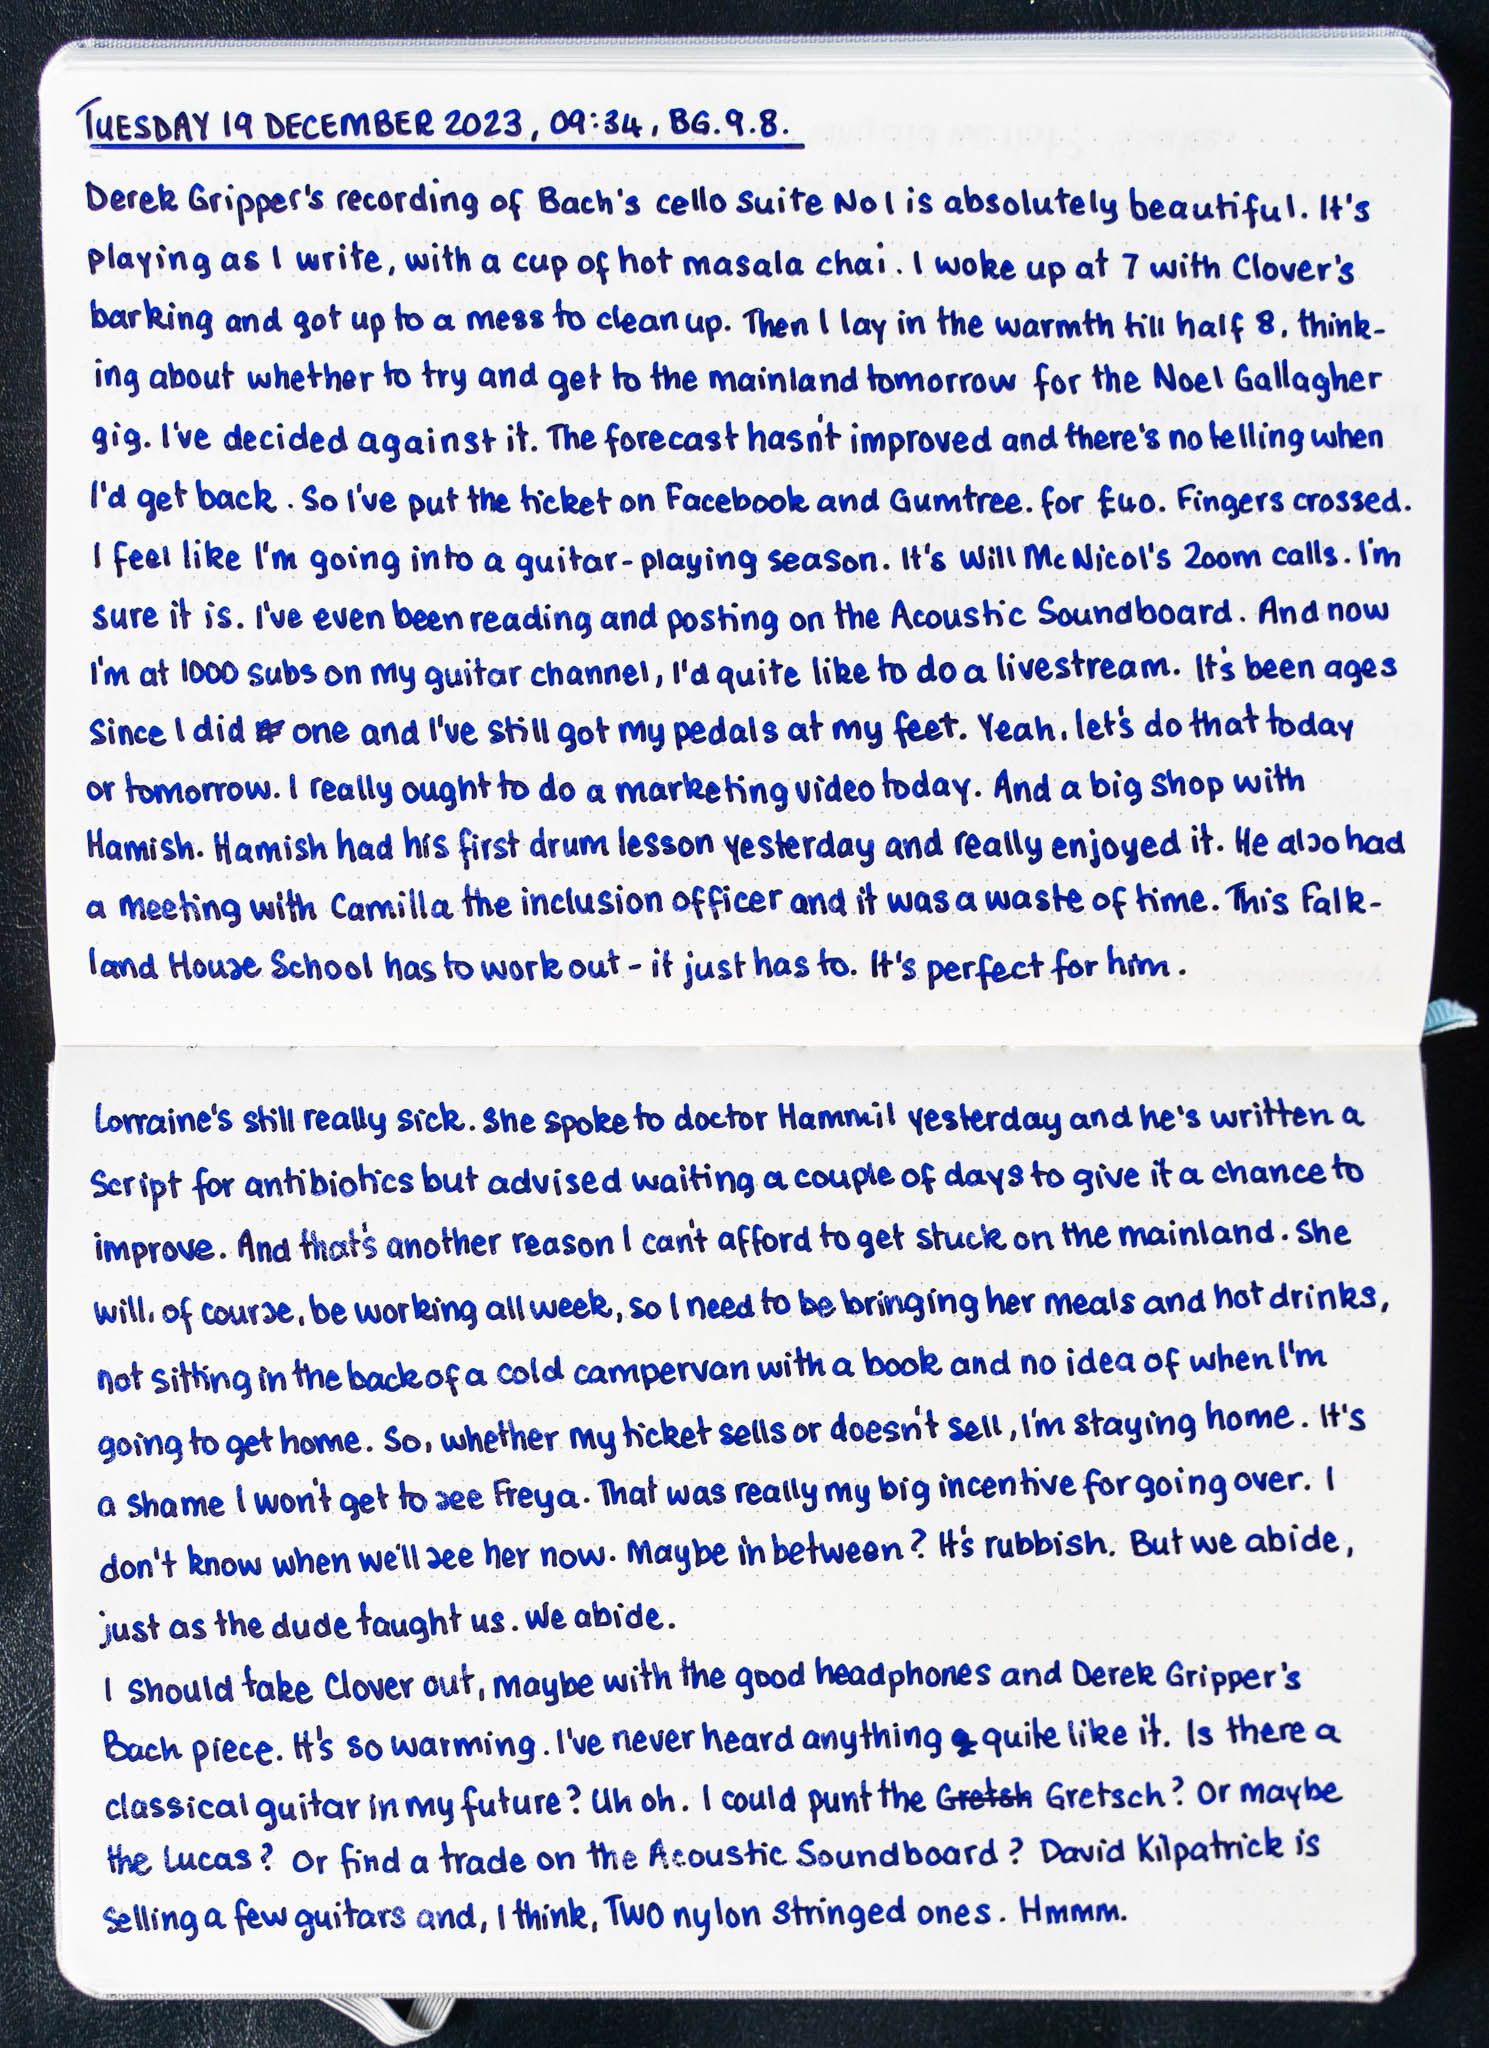 TUESDAY 19 DECEMBER 2023, 09:34, BG.9.8.
Derek Gripper's recording of Bach's cello suite No 1 is absolutely beautiful. It's
playing as I write, with a cup of hot masala chai. I woke up at 7 with Clover's
barking and got up to a mess to clean up. Then I lay in the warmth till half 8, think-
ing about whether to try and get to the mainland tomorrow for the Noel Gallagher
gig. I've decided against it. The forecast hasn't improved and there's no telling when
I'd get back. So I've put the ticket on Facebook and Gumtree. for £40. Fingers crossed.
I feel like I'm going into a guitar-playing season. It's Will McNicol's Zoom calls. I'm
sure it is. I've even been reading and posting on the Acoustic Soundboard. And now
I'm at 1000 subs on my guitar channel, I'd quite like to do a livestream. It's been ages
since I did one and I've still got my pedals at my feet. Yeah, let's do that today
or tomorrow. I really ought to do a marketing video today. And a big shop with
Hamish. Hamish had his first drum lesson yesterday and really enjoyed it. He also had
a meeting with Camilla the inclusion officer and it was a waste of time. This Falk-
land House School has to work out - it just has to. It's perfect for him.
Lorraine's still really sick. She spoke to doctor Hammil yesterday and he's written a
script for antibiotics but advised waiting a couple of days to give it a chance to
improve. And that's another reason I can't afford to get stuck on the mainland. She
will, of course, be working all week, so I need to be bringing her meals and hot drinks,
not sitting in the back of a cold campervan with a book and no idea of when I'm
going to get home. So, whether my ticket sells or doesn't sell, I'm staying home. It's
a shame I won't get to see Freya. That was really my big incentive for going over. I
don't know when we'll see her now. Maybe in between? It's rubbish. But we abide,
just as the dude taught us. We abide.
I should take Clover out, maybe with the good headphones and Derek Gripper's
Bach piece. It's so warming. I've never heard anything quite like it. Is there a
classical guitar in my future? Uh oh. I could punt the Gretsh Gretsch? Or maybe
the Lucas? Or find a trade on the Acoustic Soundboard? David Kilpatrick is
selling a few guitars and, I think, TWO nylon stringed ones. Hmmm.